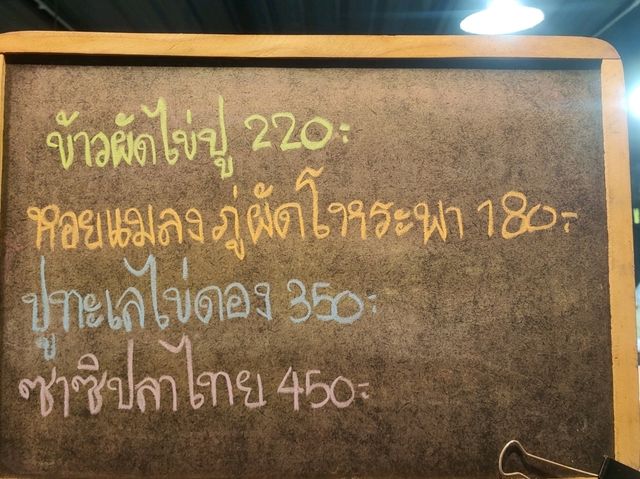 ข้าวผัดไข่ปู 220.-
หอยแมลงภู่ผัดโหระพา 180.-
ปูทะเลไข่ดอง 350.-
ซาซิปลาไทย 450.-